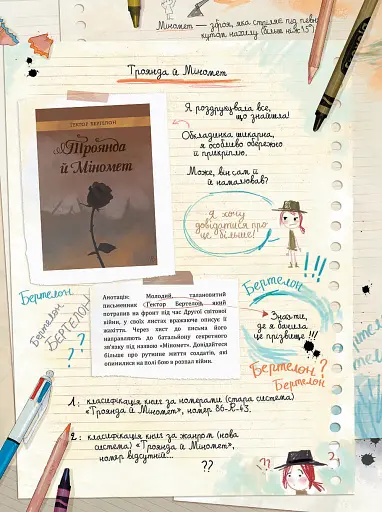 Міномет — зброя, яка стріляє під певн
кутом нахилу (більш ніж 45°)
Троянда й Міномет
Гектор Бертелон
Троянда
й Міномет
Я роздрукувала все,
що знайшла!
Обкладинка шикарна,
я особливо обережно
її прикріплю.
Може, він сам її
й намалював?
Я хочу
довідатися про
це більше!
!!!
Бертелон
? ?
Бертелон
БЕРТЕЛОН
Анотація: Молодий, талановитий
письменник (Гектор Бертелон, який
потрапив на фронт під час Другої світової
війни, у своїх листах вражаюче описує її
жахіття. Через хист до письма його
направляють до батальйону секретного
зв'язку під назвою «Міномет». Дізнайтеся
більше про рутинне життя солдатів, які
опинилися на полі бою в розпал війни.
Бертелон
Згадати,
де я бачила
це прізвище !!!
Бертелон ?
Бертелон
1: класифікація книг за номерами (стара система)
«Троянда й Міномет», номер 86-R-43.
2: класифікація книг за жанром (нова
система) «Троянда й Міномет»,
номер відсутній...
??
??